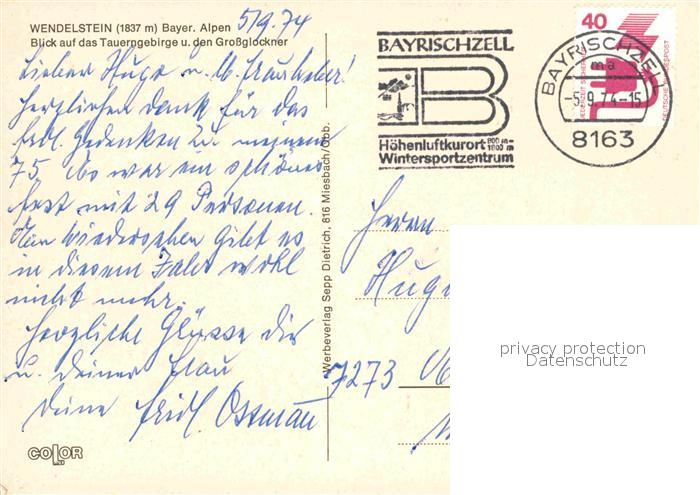 WENDELSTEIN (1837 m) Bayer. Alpen
Blick auf das Tauerngebirge u. den Großglockner
5/9.74
Lieber Hugo u.
herzlichen Dank für das
frdl. Gedenken zu meinem
75. Es war ein schönes
Fest mit 29 Personen.
Ein Wiedersehen gibt es
in diesem Jahr wohl
nicht mehr.
Herzliche Grüsse dir
u. deiner Frau
Deine
COLOR
Werbeverlag Sepp Dietrich, 816 Miesbach/Obb.
BAYRISCHZELL
B
Höhenluftkurort 800 m-1800 m
Wintersportzentrum
BAYRISCHZELL
ma
-5.9.74-15
8163
40
DEUTSCHE BUNDESPOST
JEDERZEIT SICHERHEIT
Herrn
Hugo
7273
privacy protection
Datenschutz